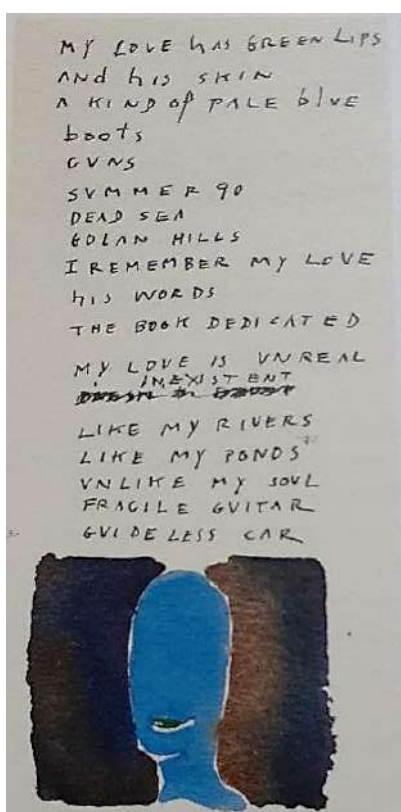 MY LOVE hAS GREEN LIPS
AND his SKIN
A KIND of PALE blue
boots
GUNS
SUMMER 90
DEAD SEA
GOLAN HILLS
I REMEMBER MY LOVE
his WORDS
THE BOOK DEDICATED
MY LOVE IS UNREAL
INEXISTENT
LIKE MY RIVERS
LIKE MY PONDS
UNLIKE MY SOUL
FRAGILE GUITAR
GUIDELESS CAR